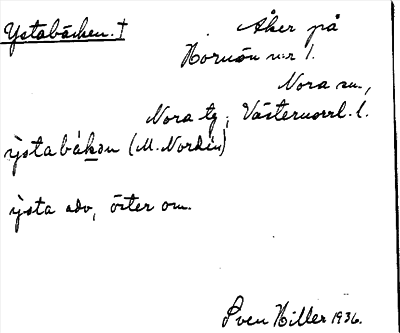 Ystabäcken. †
Åker på
Hornön n:r 1.
Nora sn.,
Nora tg, Västernorrl. l.
ỳstabákən (M. Nordin)
ỳsta adv, öster om.
Sven Hiller 1936.